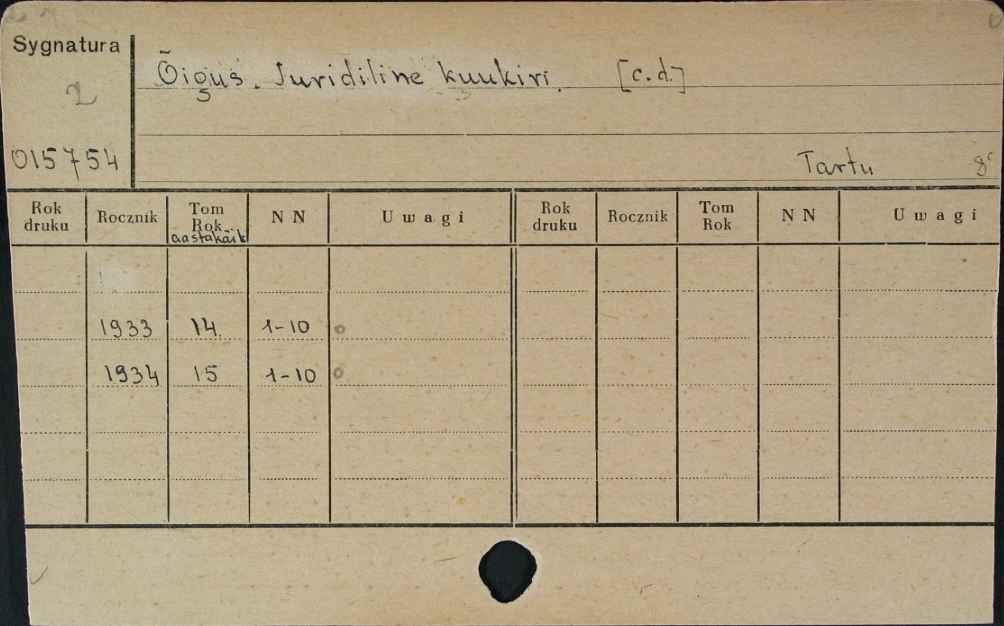 Sygnatura
2
015754
Õigus. Juridiline kuukiri. [c.d.]
Tartu 8°
Rok druku Rocznik Tom Rok aastakäik N N Uwagi Rok druku Rocznik Tom Rok N N Uwagi
1933 14 1-10
1934 15 1-10